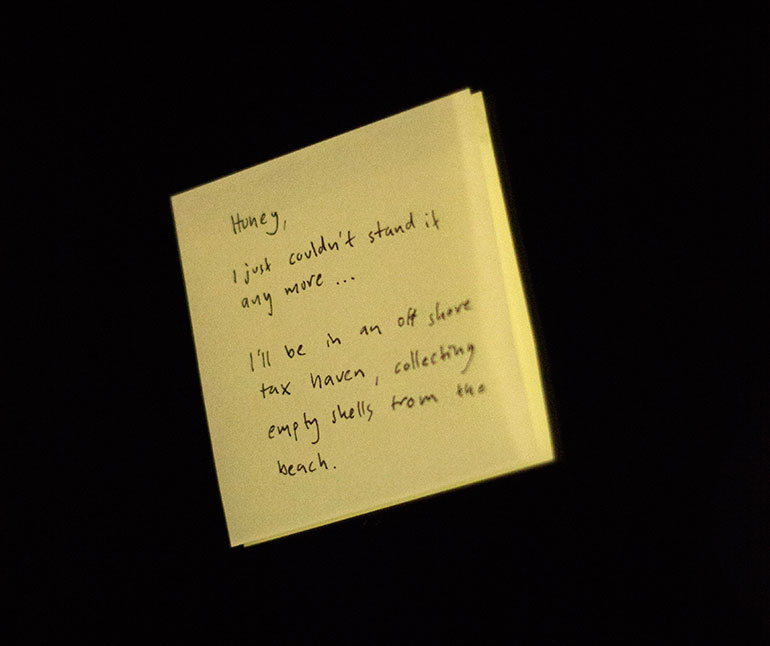 Huney,
I just couldn't stand it
any more ...
I'll be in an off shore
tax haven, collecting
empty shells from the
beach.